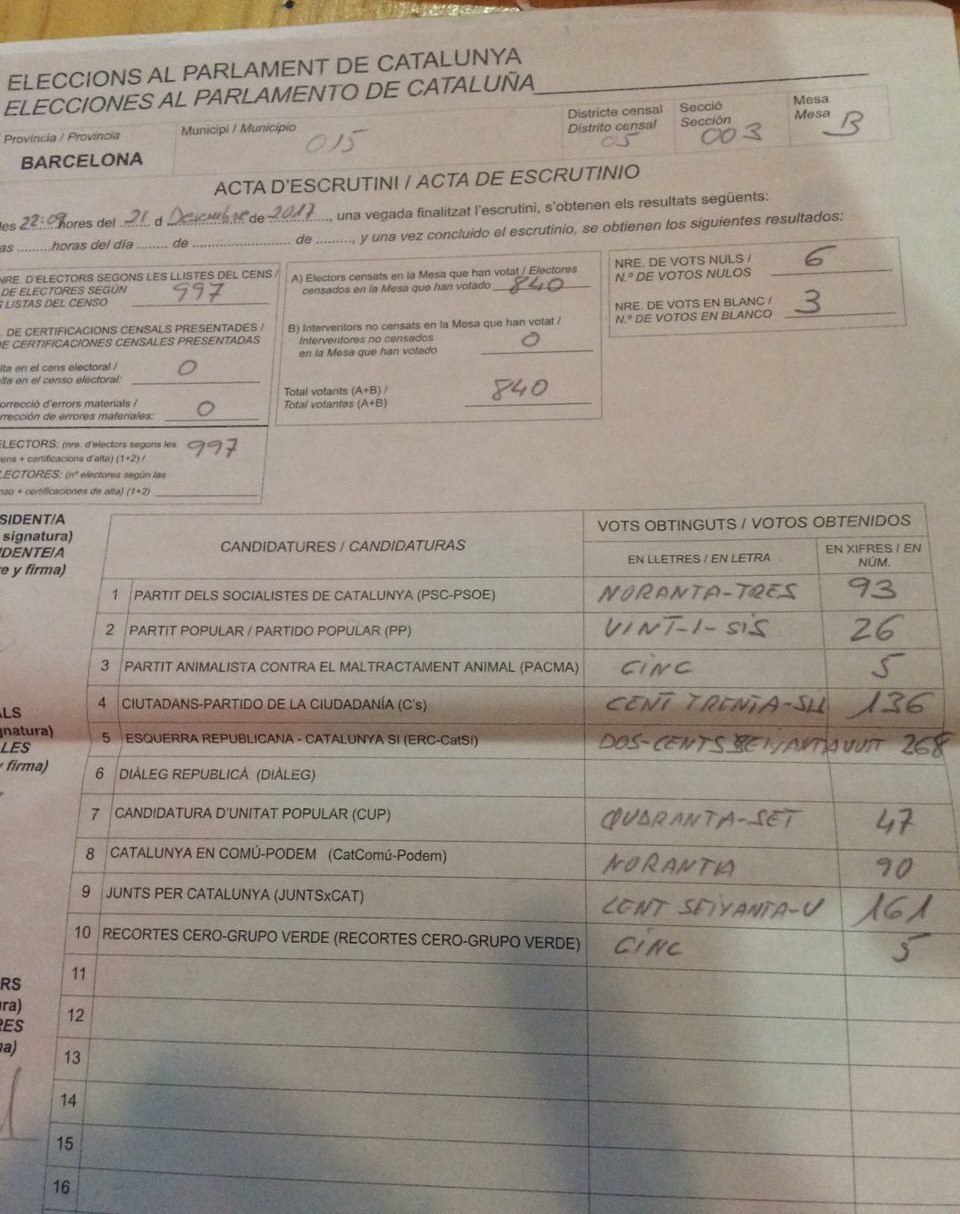 ELECCIONS AL PARLAMENT DE CATALUNYA
ELECCIONES AL PARLAMENTO DE CATALUÑA
Província / Provincia
BARCELONA
Municipi / Municipio
015
Districte censal
Distrito censal
05
Secció
Sección
003
Mesa
Mesa
B
ACTA D'ESCRUTINI / ACTA DE ESCRUTINIO
les 22:09 hores del 21 d Desembre de 2017, una vegada finalitzat l'escrutini, s'obtenen els resultats següents:
as ........horas del día ....... de ...................... de ........, y una vez concluido el escrutinio, se obtienen los siguientes resultados:
NRE. D'ELECTORS SEGONS LES LLISTES DEL CENS /
DE ELECTORES SEGÚN
S LISTAS DEL CENSO 997
. DE CERTIFICACIONS CENSALS PRESENTADES /
DE CERTIFICACIONES CENSALES PRESENTADAS
lta en el cens electoral /
lta en el censo electoral: 0
orrecció d'errors materials /
rrección de errores materiales: 0
ELECTORS: (nre. d'electors segons les
ens + certificacions d'alta) (1+2) / 997
LECTORES: (nº electores según las
nso + certificaciones de alta) (1+2)
A) Electors censats en la Mesa que han votat / Electores
censados en la Mesa que han votado 840
B) Interventors no censats en la Mesa que han votat /
Interventores no censados
en la Mesa que han votado 0
Total votants (A+B) /
Total votantes (A+B) 840
NRE. DE VOTS NULS /
N.º DE VOTOS NULOS 6
NRE. DE VOTS EN BLANC /
N.º DE VOTOS EN BLANCO 3
SIDENT/A
signatura)
IDENTE/A
e y firma)
ALS
gnatura)
LES
y firma)
RS
ura)
RES
na)
CANDIDATURES / CANDIDATURAS
VOTS OBTINGUTS / VOTOS OBTENIDOS
EN LLETRES / EN LETRA
EN XIFRES / EN
NÚM.
1 PARTIT DELS SOCIALISTES DE CATALUNYA (PSC-PSOE) NORANTA-TRES 93
2 PARTIT POPULAR / PARTIDO POPULAR (PP) VINT-I-SIS 26
3 PARTIT ANIMALISTA CONTRA EL MALTRACTAMENT ANIMAL (PACMA) CINC 5
4 CIUTADANS-PARTIDO DE LA CIUDADANÍA (C's) CENT TRENTA-SIS 136
5 ESQUERRA REPUBLICANA - CATALUNYA SI (ERC-CatSí) DOS-CENTS SEIXANTA VUIT 268
6 DIÀLEG REPUBLICÀ (DIÀLEG)
7 CANDIDATURA D'UNITAT POPULAR (CUP) QUARANTA-SET 47
8 CATALUNYA EN COMÚ-PODEM (CatComú-Podem) NORANTA 90
9 JUNTS PER CATALUNYA (JUNTSxCAT) CENT SEIXANTA-U 161
10 RECORTES CERO-GRUPO VERDE (RECORTES CERO-GRUPO VERDE) CINC 5
11
12
13
14
15
16